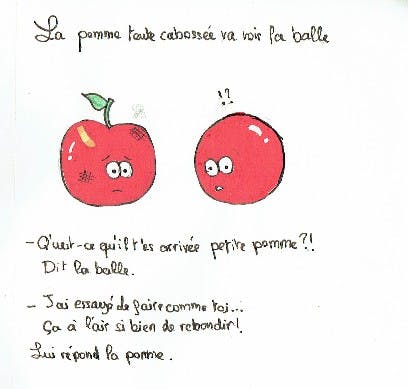 La pomme toute cabossée va voir la balle
!?
- Qu'est-ce qu'il t'es arrivée petite pomme ?!
Dit la balle.
- J'ai essayé de faire comme toi...
Ça à l'air si bien de rebondir !
Lui répond la pomme.